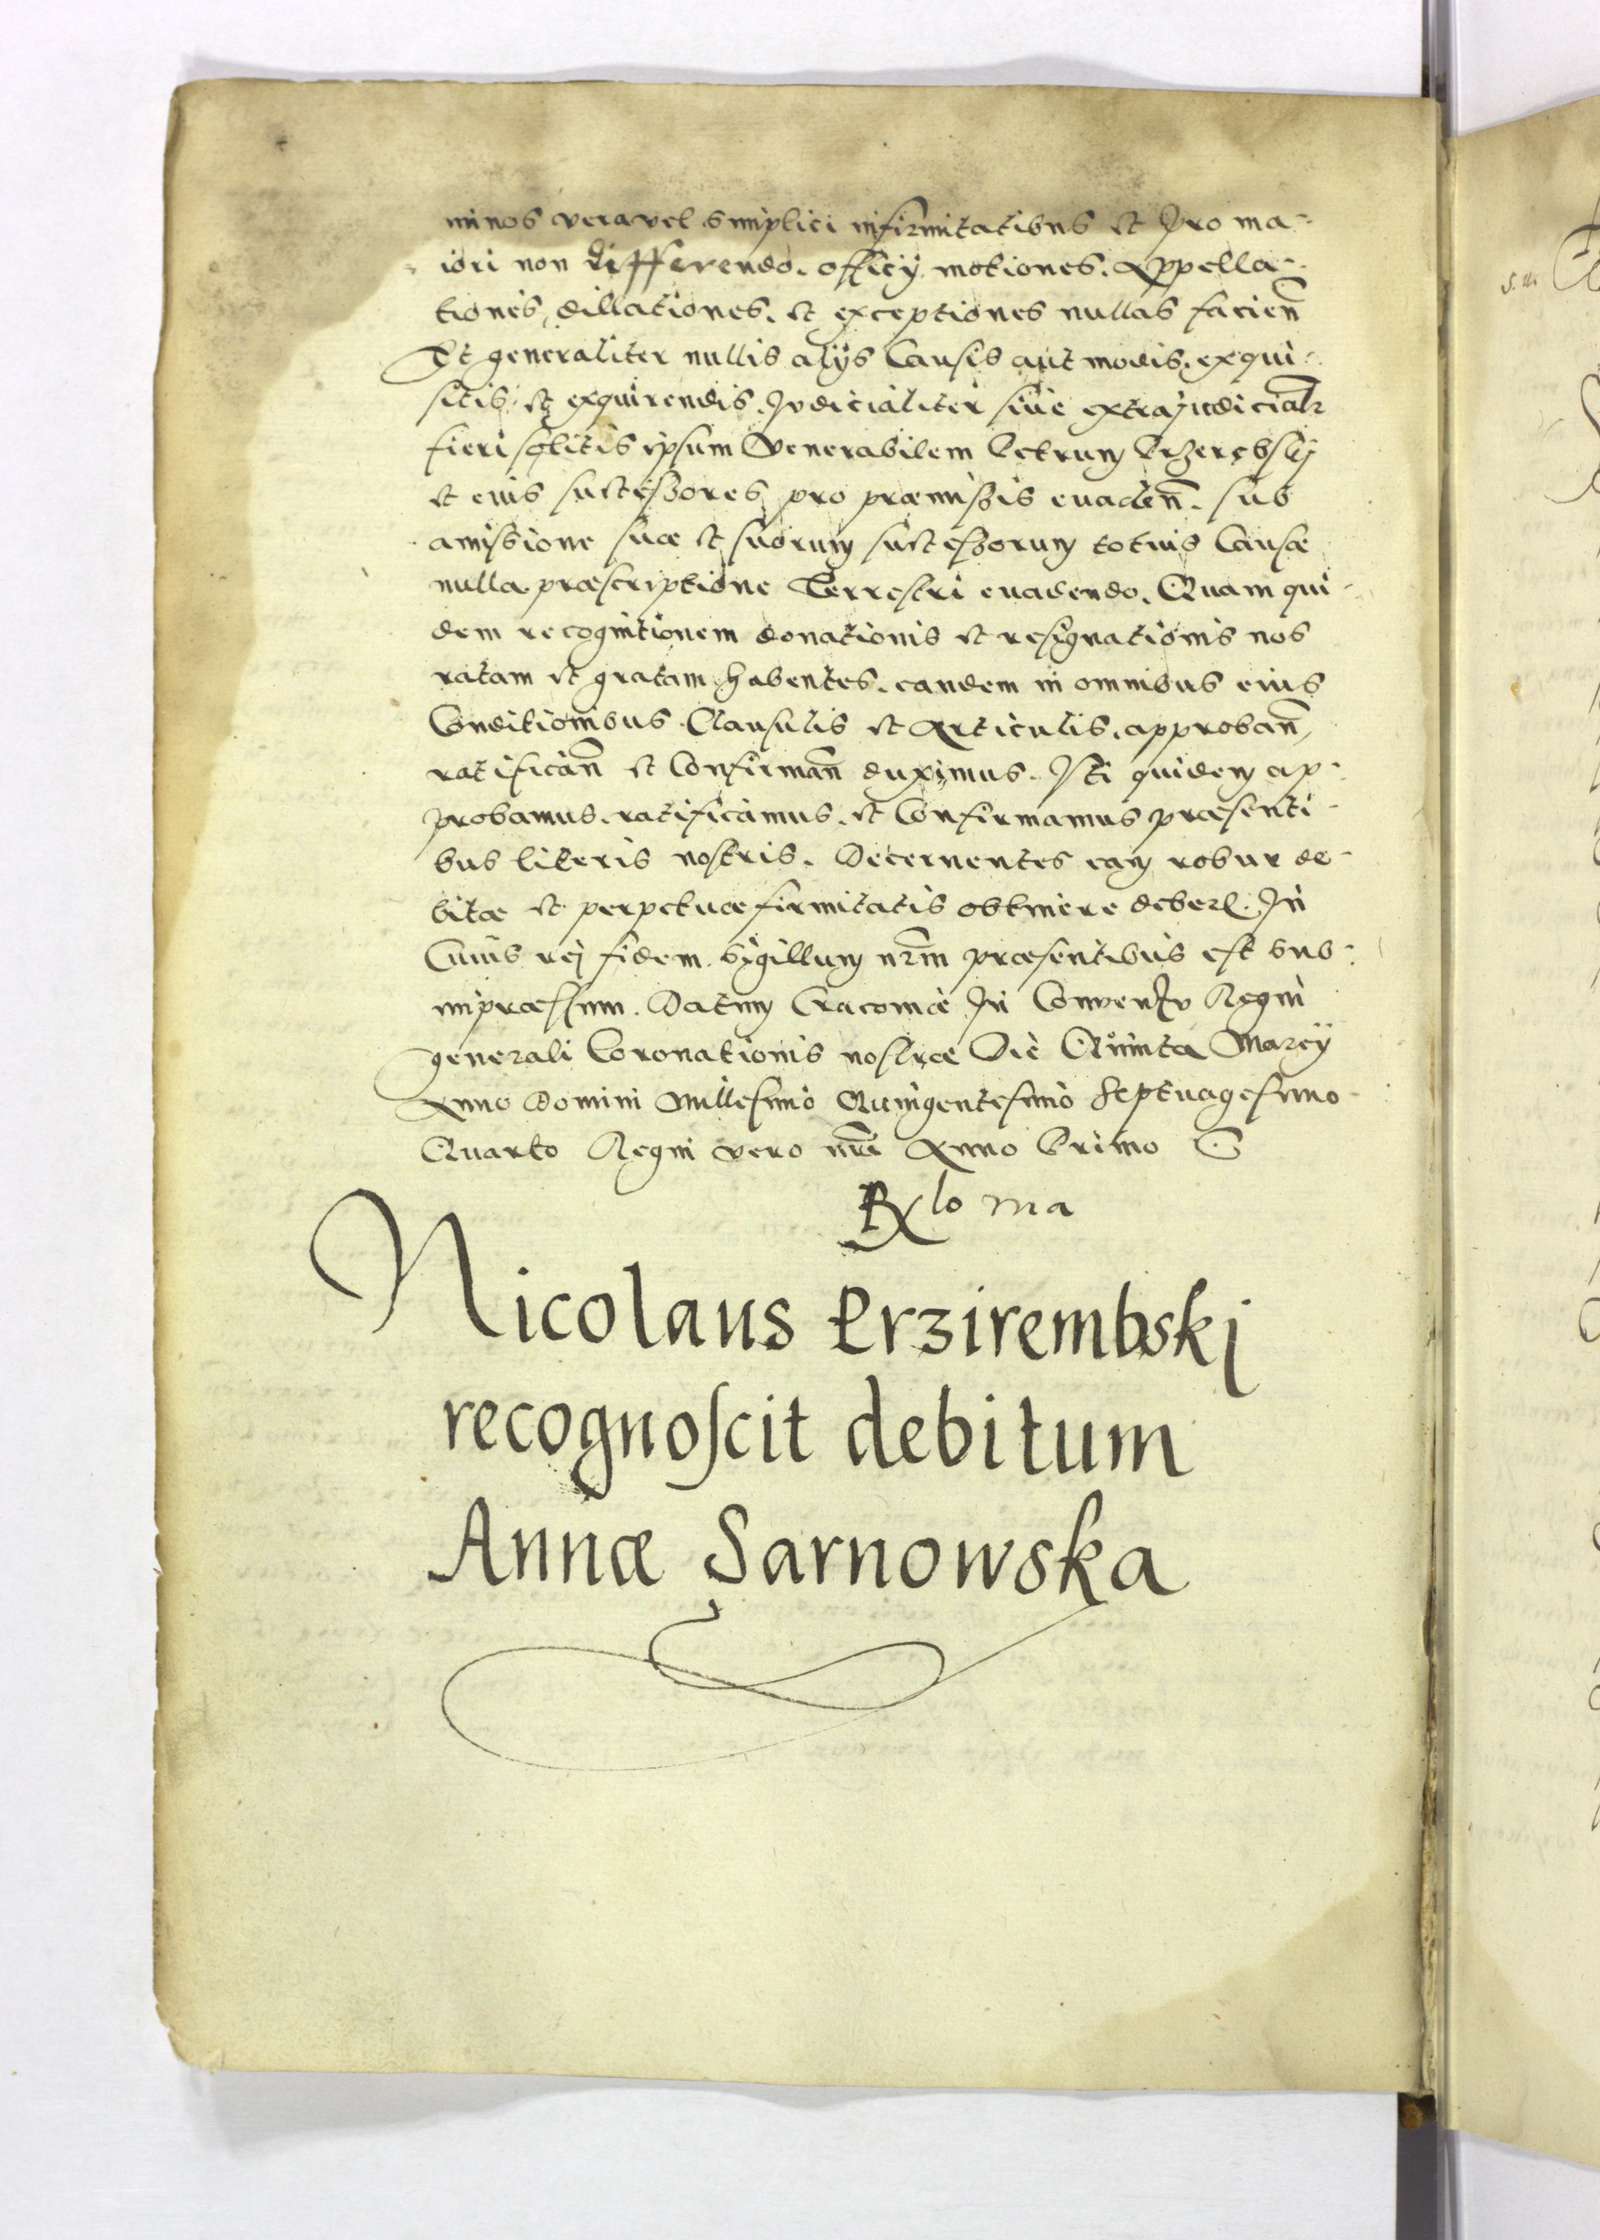 minos vera vel simplici infirmitatibus et pro ma-
iori non differendo. officij motiones. Appella-
tiones, dillationes. et exceptiones nullas facien̄
Et generaliter nullis alijs Causis aut modis. exqui-
sitis et exquirendis. Judicialiter siue extrajudicialr
fieri solitis ipsum Venerabilem Petrum Przerębskij
et eius successores pro præmissis euaden̄. sub
amissione suæ et suorum successorum totius Causæ
nulla præscriptione Terrestri euadendo. Quam qui-
dem recognitionem donationis et resignationis nos
ratam et gratam habentes. eandem in omnibus eius
Conditionibus Clausulis et Articulis. approban̄,
ratifican̄ et Confirman̄ duximus. Jti quidem ap-
probamus. ratificamus. et Confirmamus præsenti-
bus literis nostris. Decernentes eam robur de-
bitæ et perpetuæ firmitatis obtinere deberę. In
Cuius rej fidem. Sigillum nr̄m præsentibus est sub-
impræssum. Datum Cracouiæ In Conventu Regni
generali Coronationis nostræ Die Quinta Marcij
Anno Domini Millesimo Quingentesimo Septuagesimo
Quarto Regni vero nr̄i Anno Primo
Nicolaus Przirembskj
recognoſcit debitum
Annæ Sarnowska